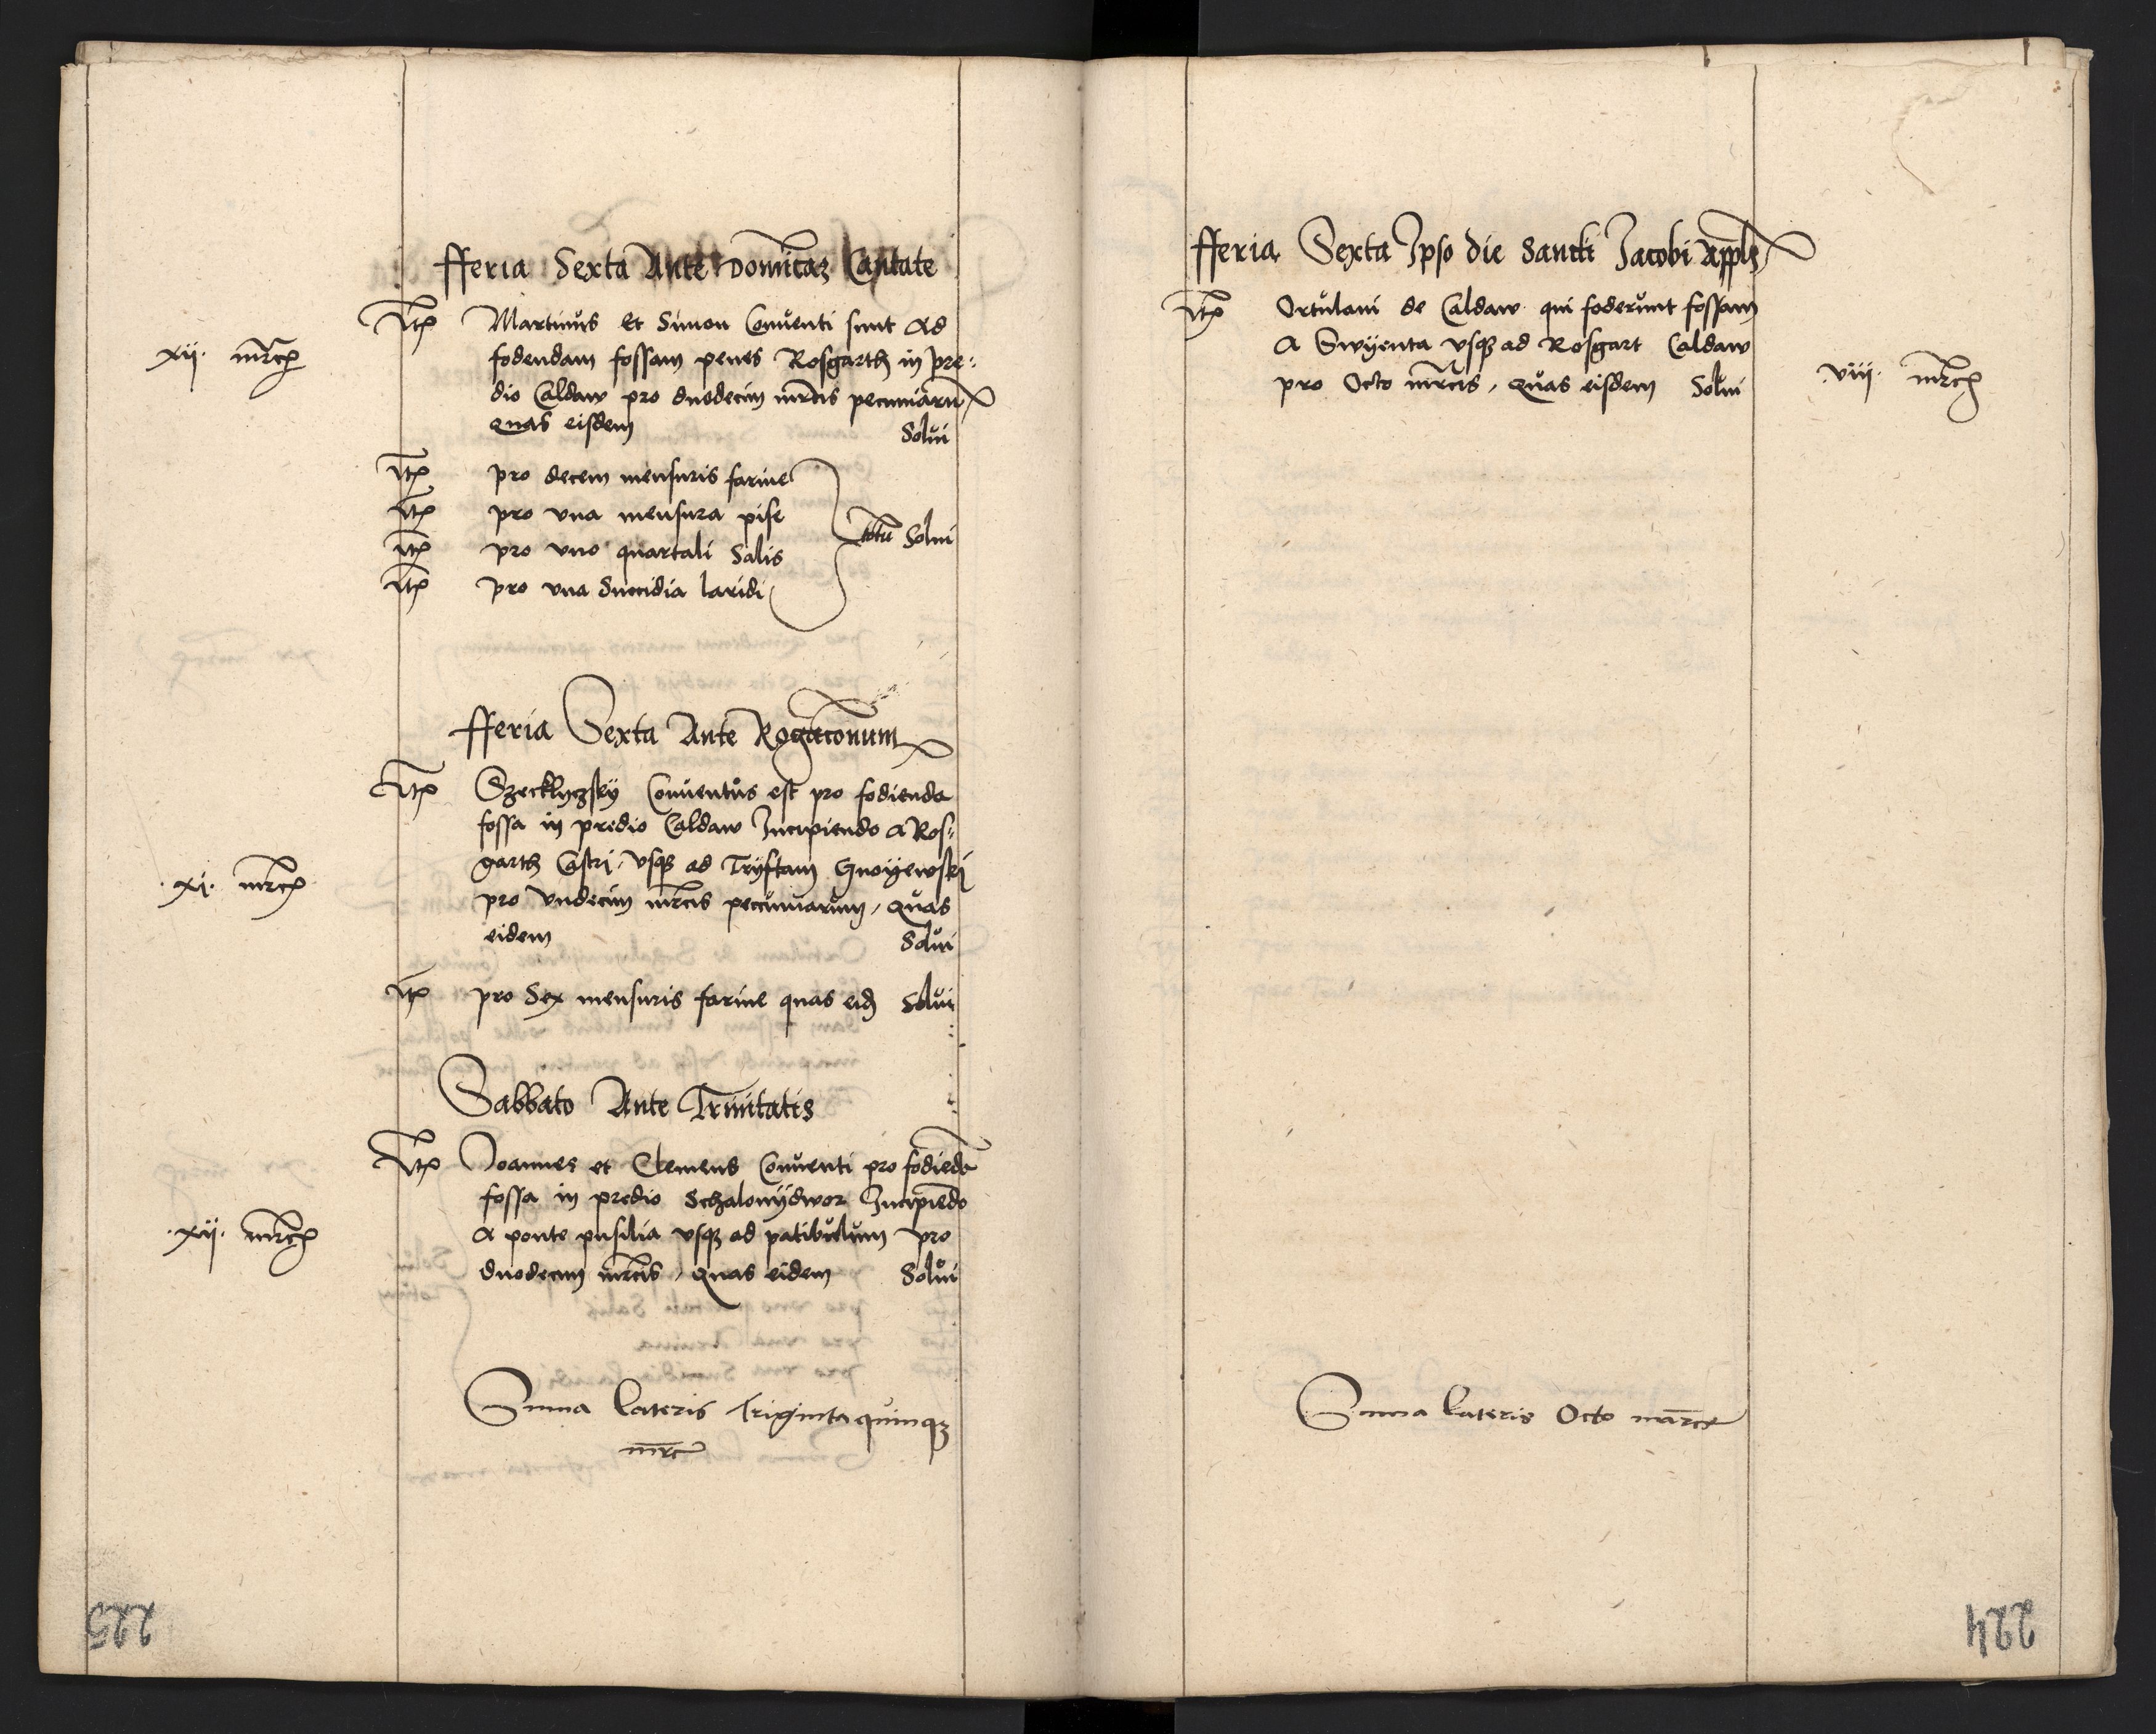 fferia Sexta Ante Domicaz Cantate
Itꝫ Martinus Et Simon Conuenti sunt ad
xij. mrcꝭ fodendam fossam penes Rosgarth in pre:
dio Caldaw pro duodecim mrcis pecuniaru
quas eisdem Solui
Itꝫ pro decem mensuris farine
Itꝫ pro vna mensura pise
totu Solui
Itꝫ pro vno quartali Salis
Itꝫ pro vna Succidia laridi
fferia Sexta Ante Rogacconum
Itꝫ Szecklyzsky Conuentus est pro fodienda
fossa in predio Caldaw Incipiendo a Ros:
.xi. mrcꝭ garth Castri, vsqꝫ ad Tryftam Gnoyewski
pro Vndecim mrcis peccuniarum, quas
eidem Solui
Itꝫ pro Sex mensuris farine quas eid Solui
Sabbato Ante Trinitatis
Itꝫ Joannes et Clemens Conuenti pro fodieda
fossa in predio Schalonydwor Incipiedo
.xij. mrcꝭ a ponte pusilia vsqꝫ ad patibulum pro
duodecim mrcis, quas eidem Solui
Suma Lateris Triginta quinqꝫ
mrc
225
fferia Sexta Ipso die Sancti Jacobi Appls
Itꝫ Ortulani de Caldaw qui foderunt fossam
a Swyenta vsqꝫ ad Rosgart Caldaw
pro Octo mrcis, quas eisdem Solui .viij. mrcꝭ
Suma Lateris Octo marcꝭ
224